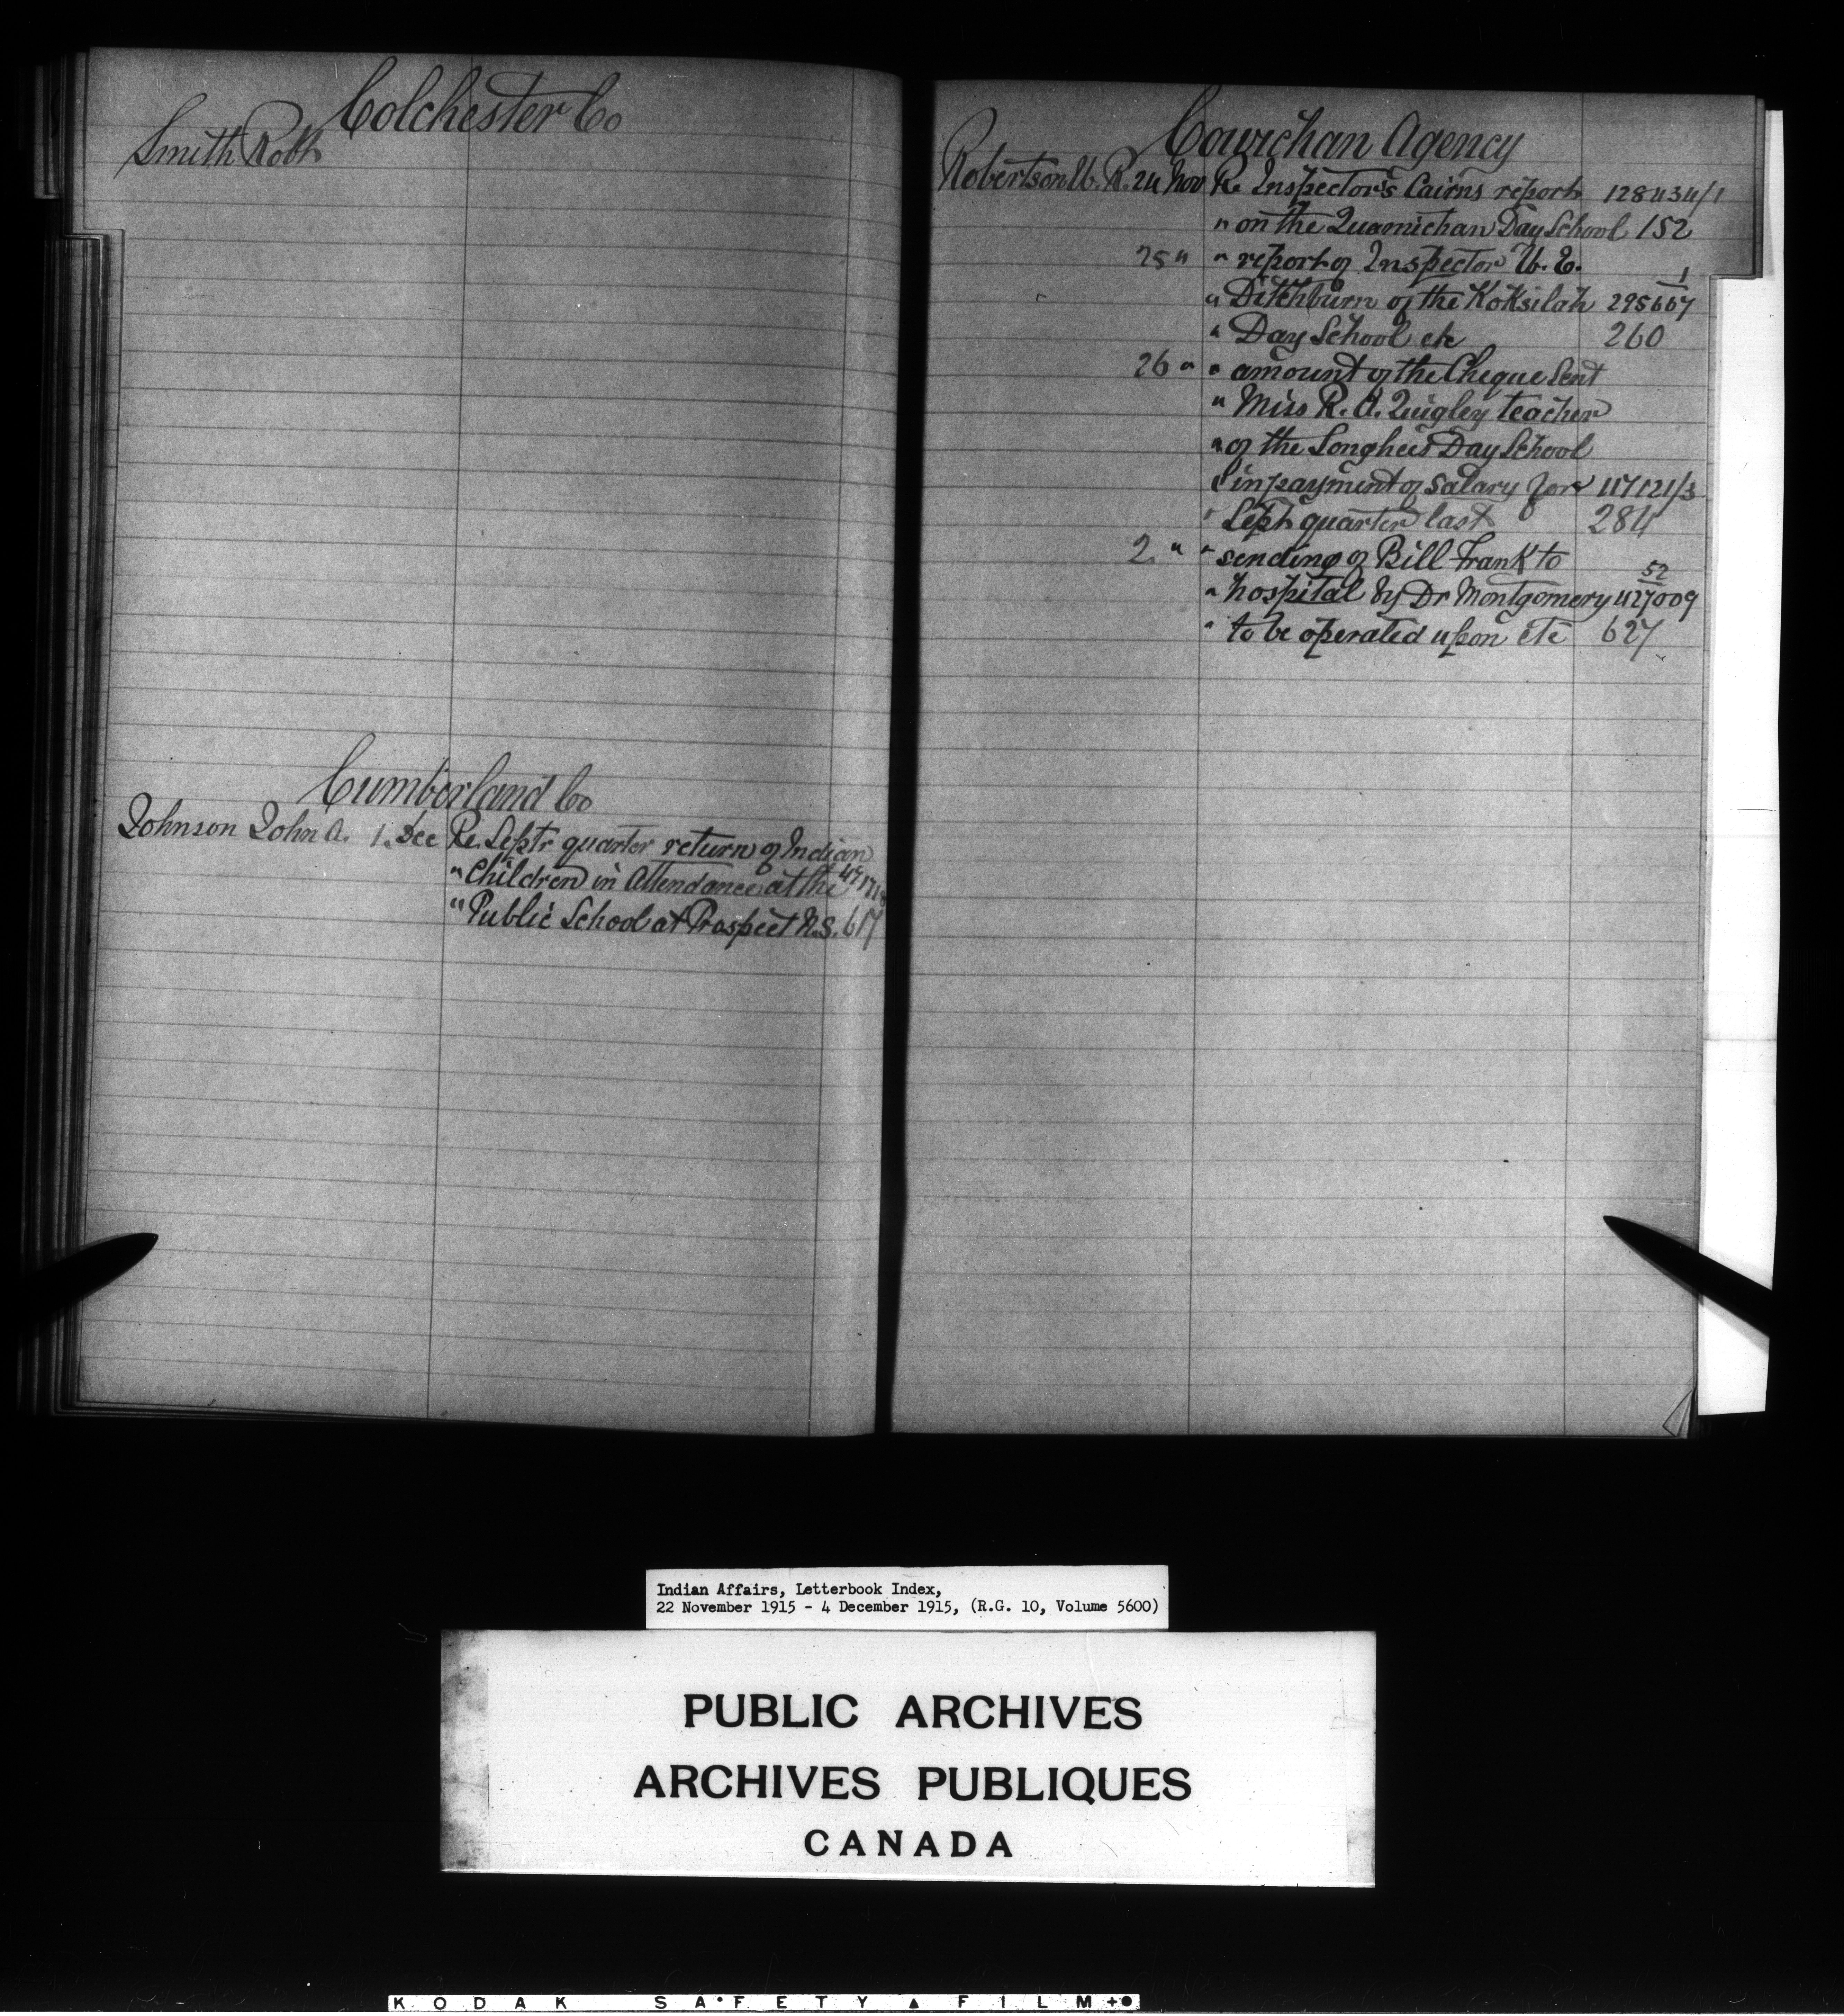 Colchester Co
Smith Robt
Cumberland Co
Johnson John A. 1. Dec Re. Septr quarter return of Indian
" Children in Attendance at the
" Public School at Prospect N.S. 617
Cowichan Agency
Robertson W. R. 24 Nov Re Inspector's Cairns report 128434/1
" on the Quamichan Day School 152
25 " " report of Inspector W. E. 1
" Ditchburn of the Koksilah 295667
" Day School etc 260
26 " " amount of the Cheque sent
" Miss R. A. Quigley teacher
" of the Songhees Day School
" in payment of salary for 117121/3
" Sept quarter last 284
2 " " sending of Bill Frank to 52
" hospital by Dr Montgomery 427009
" to be operated upon etc 627
Indian Affairs, Letterbook Index,
22 November 1915 - 4 December 1915, (R.G. 10, Volume 5600)
PUBLIC ARCHIVES
ARCHIVES PUBLIQUES
CANADA
KODAK SA•FETY ▲ FILM +●